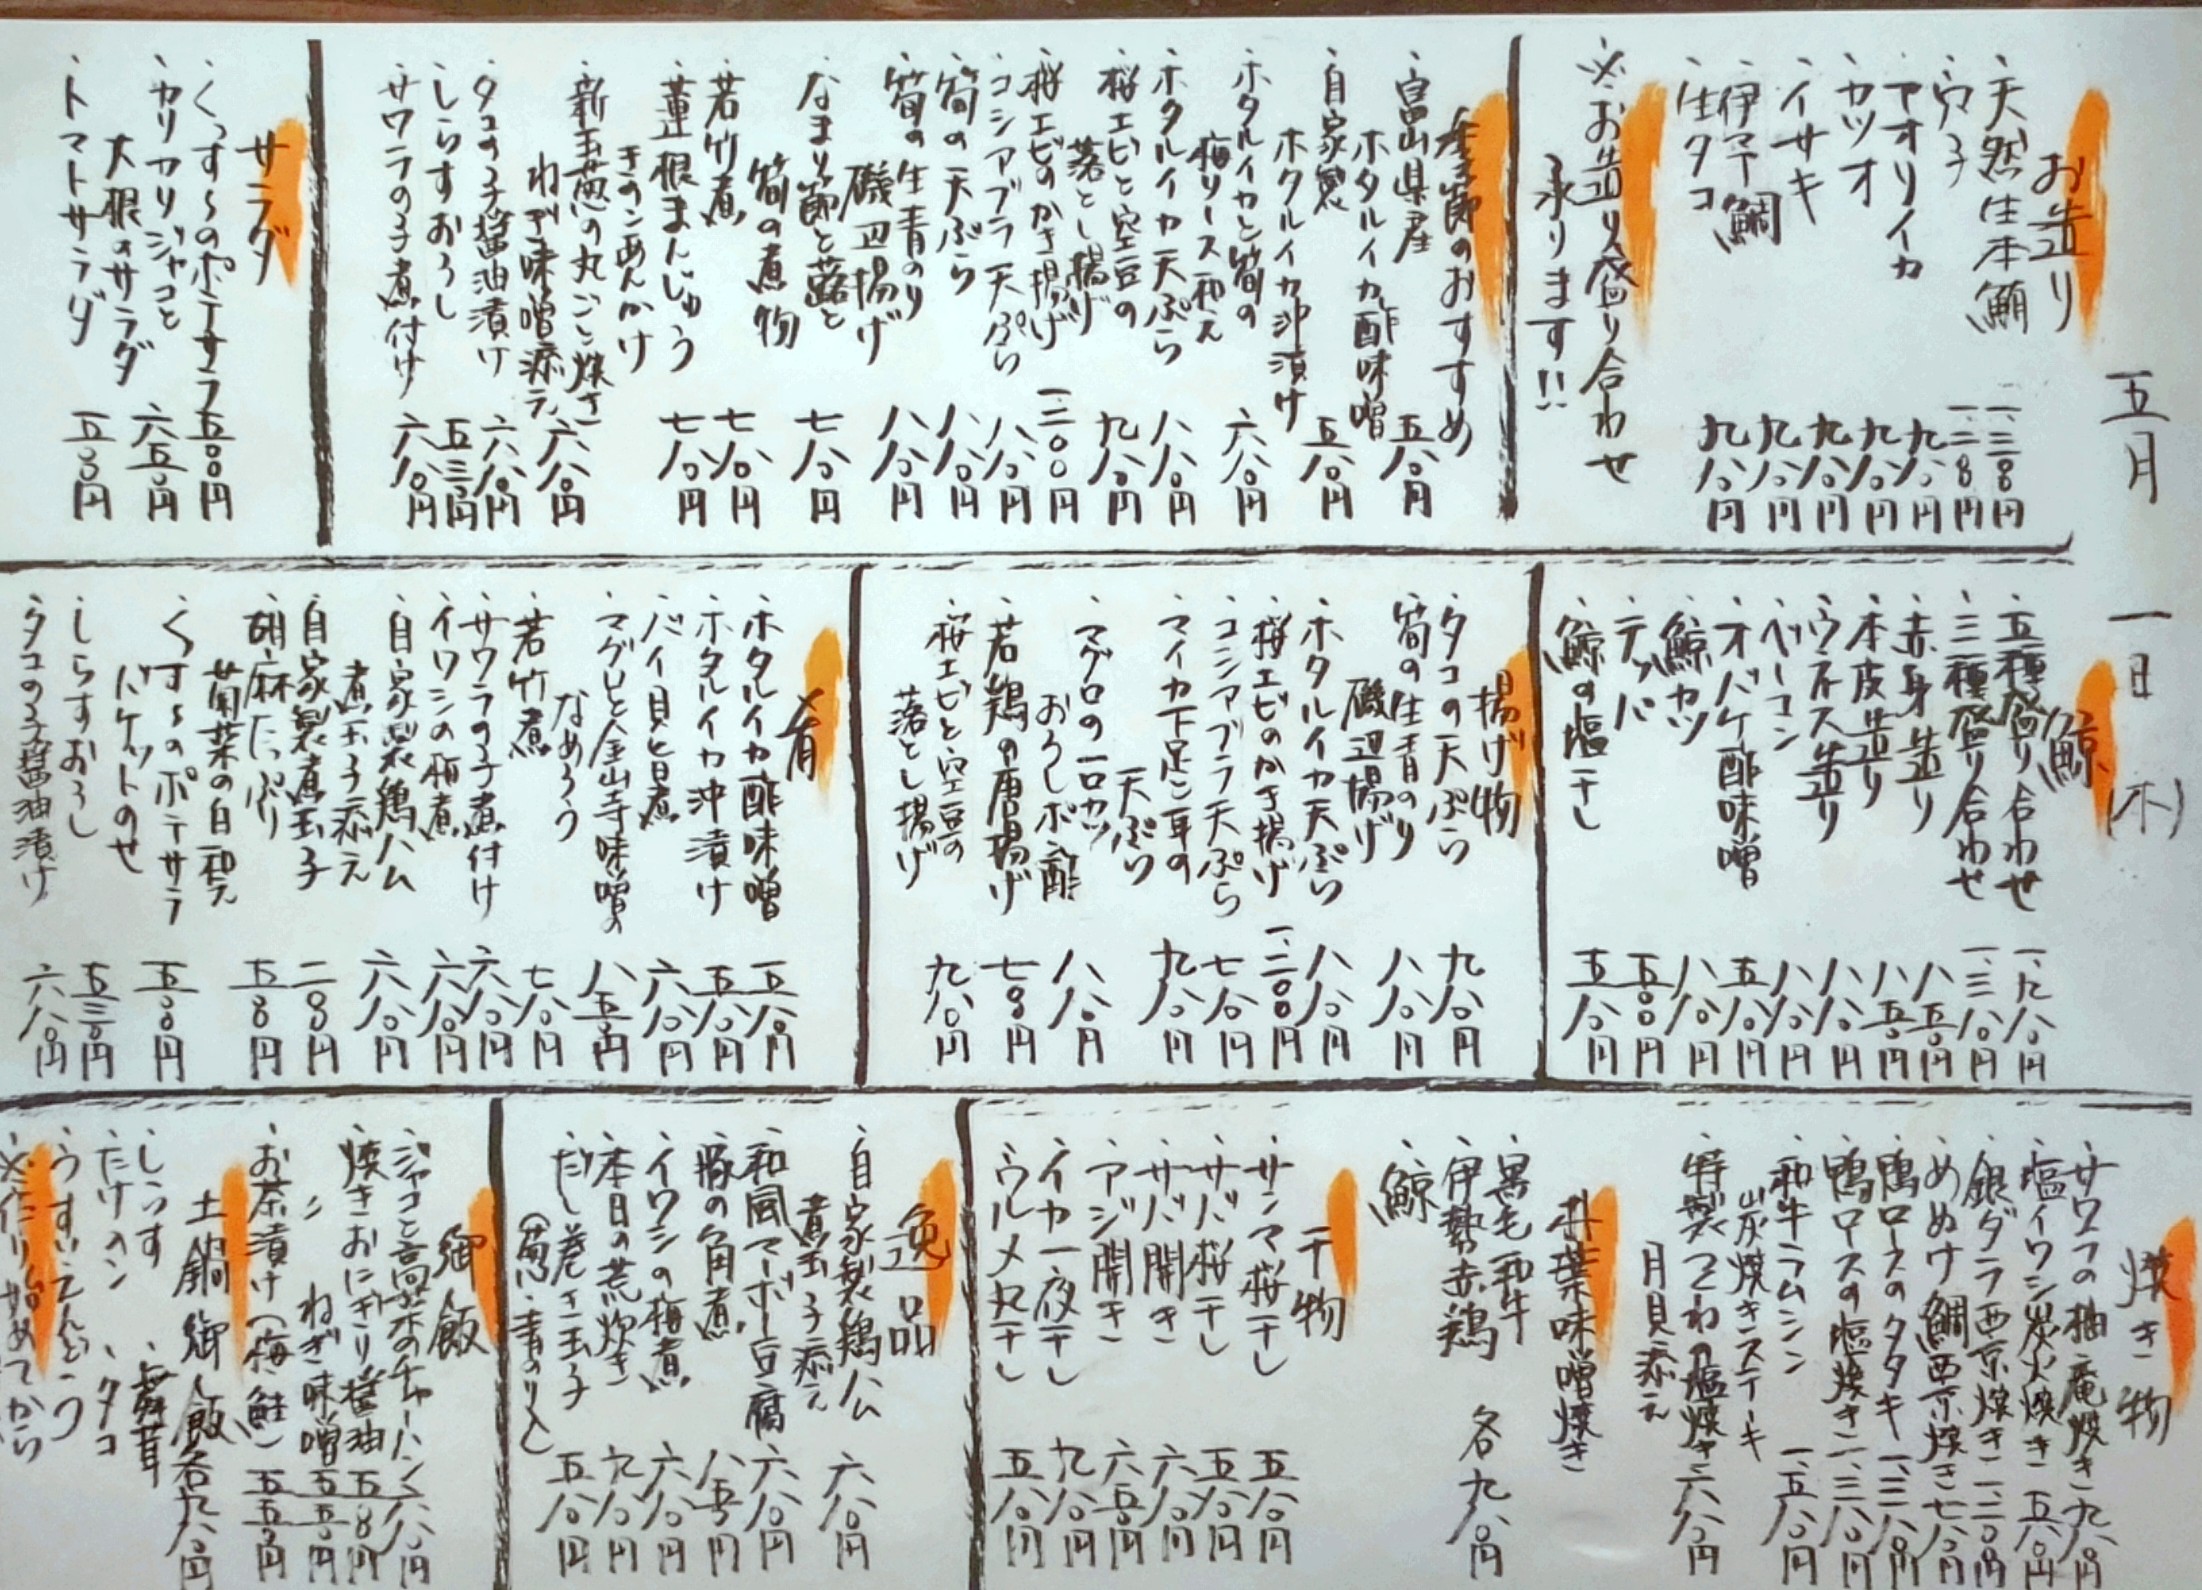 五月 一日 (木)
お造り
・天然生本鮪 一、三〇〇円
・穴子 一、二〇〇円
・アオリイカ 九八〇円
・カツオ 九八〇円
・イサキ 九八〇円
・伊予鯛 九八〇円
・生タコ 九八〇円
※お造り盛り合わせ
承ります!!
季節のおすすめ
・富山県産
ホタルイカ酢味噌 五八〇円
・自家製
ホタルイカ沖漬け 五八〇円
・ホタルイカと筍の
梅ソース和え 六八〇円
・ホタルイカ天ぷら 八八〇円
・桜エビと空豆の
落とし揚げ 九八〇円
・桜エビのかき揚げ 一、二〇〇円
・コシアブラ天ぷら 八八〇円
・筍の天ぷら 八八〇円
・筍の生青のり
磯辺揚げ 八八〇円
・なまり節と蕗と
筍の煮物 七八〇円
・若竹煮 七八〇円
・蓮根まんじゅう
きのこあんかけ 七八〇円
・新玉葱の丸ごと焼き
ねぎ味噌添え 六八〇円
・タコの子醤油漬け 六八〇円
・しらすおろし 五三〇円
・サワラの子煮付け 六八〇円
サラダ
・くっすーのポテサラ 五〇〇円
・カリカリジャコと
大根のサラダ 六五〇円
・トマトサラダ 五〇〇円
鯨
・五種盛り合わせ 一、九八〇円
・三種盛り合わせ 一、三八〇円
・赤身造り 八五〇円
・本皮造り 八五〇円
・ウネス造り 八八〇円
・ベーコン 八八〇円
・オバケ酢味噌 五八〇円
・鯨カツ 八八〇円
・テッパ 五〇〇円
・鯨の塩干し 五八〇円
揚げ物
・タコの天ぷら 九八〇円
・筍の生青のり
磯辺揚げ 八八〇円
・ホタルイカ天ぷら 八八〇円
・桜エビのかき揚げ 一、二〇〇円
・コシアブラ天ぷら 七八〇円
・マイカ下足と耳の
天ぷら 九八〇円
・マグロの一口カツ
おろしポン酢 八八〇円
・若鶏の唐揚げ 七〇〇円
・桜エビと空豆の
落とし揚げ 九八〇円
肴
・ホタルイカ酢味噌 五八〇円
・ホタルイカ沖漬け 五八〇円
・バイ貝旨煮 六八〇円
・マグロと金山寺味噌の
なめろう 八五〇円
・若竹煮 七八〇円
・サワラの子煮付け 六八〇円
・イワシの梅煮 六八〇円
・自家製鶏ハム
煮玉子添え 六八〇円
・自家製煮玉子 二〇〇円
・胡麻たっぷり
菊菜の白和え 五〇〇円
・くすーのポテサラ
バケットのせ 五〇〇円
・しらすおろし 五三〇円
・タコの子醤油漬け 六八〇円
焼き物
・サワラの柚庵焼き 九八〇円
・塩イワシ炭火焼き 五八〇円
・銀ダラ西京焼き 一、三〇〇円
・めぬけ鯛西京焼き 七八〇円
・鴨ロースのタタキ 一、三八〇円
・鴨ロースの塩焼き 一、三八〇円
・和牛ラムシン
炭焼きステーキ 一、五八〇円
・特製つくねの塩焼き
月見添え 六八〇円
朴葉味噌焼き
・黒毛和牛
・伊勢赤鶏
・鯨 各九八〇円
干物
・サンマ桜干し 五八〇円
・サバ桜干し 五八〇円
・サバ開き 六八〇円
・アジ開き 六五〇円
・イカ一夜干し 九八〇円
・ウルメ丸干し 五八〇円
逸品
・自家製鶏ハム
煮玉子添え 六八〇円
・和風マーボー豆腐 六八〇円
・豚の角煮 八五〇円
・イワシの梅煮 六八〇円
・本日の荒炊き 九八〇円
・だし巻き玉子
(葱・青のり入) 五八〇円
御飯
・ジャコと高菜のチャーハン 八八〇円
・焼きおにぎり醤油 五〇〇円
・〃 ねぎ味噌 五五〇円
・お茶漬け(梅・鮭) 五五〇円
土鍋御飯 各九八〇円
・しらす ・舞茸
・たけのこ ・タコ
・うすいえんどう
※作り始めてから